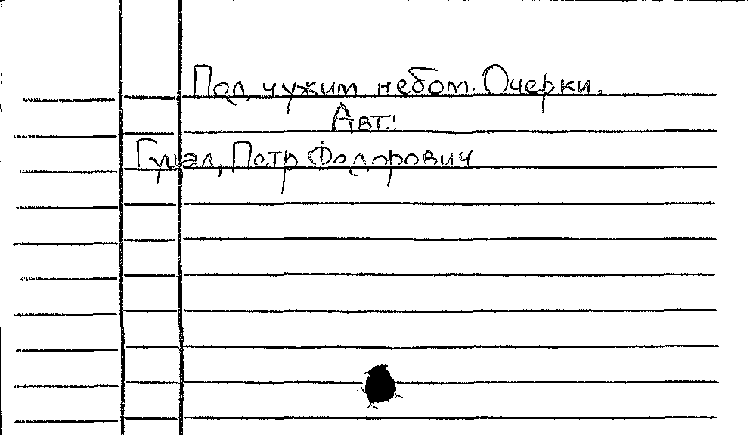 Под чужим небом. Очерки.
Авт.:
Петр Федорович